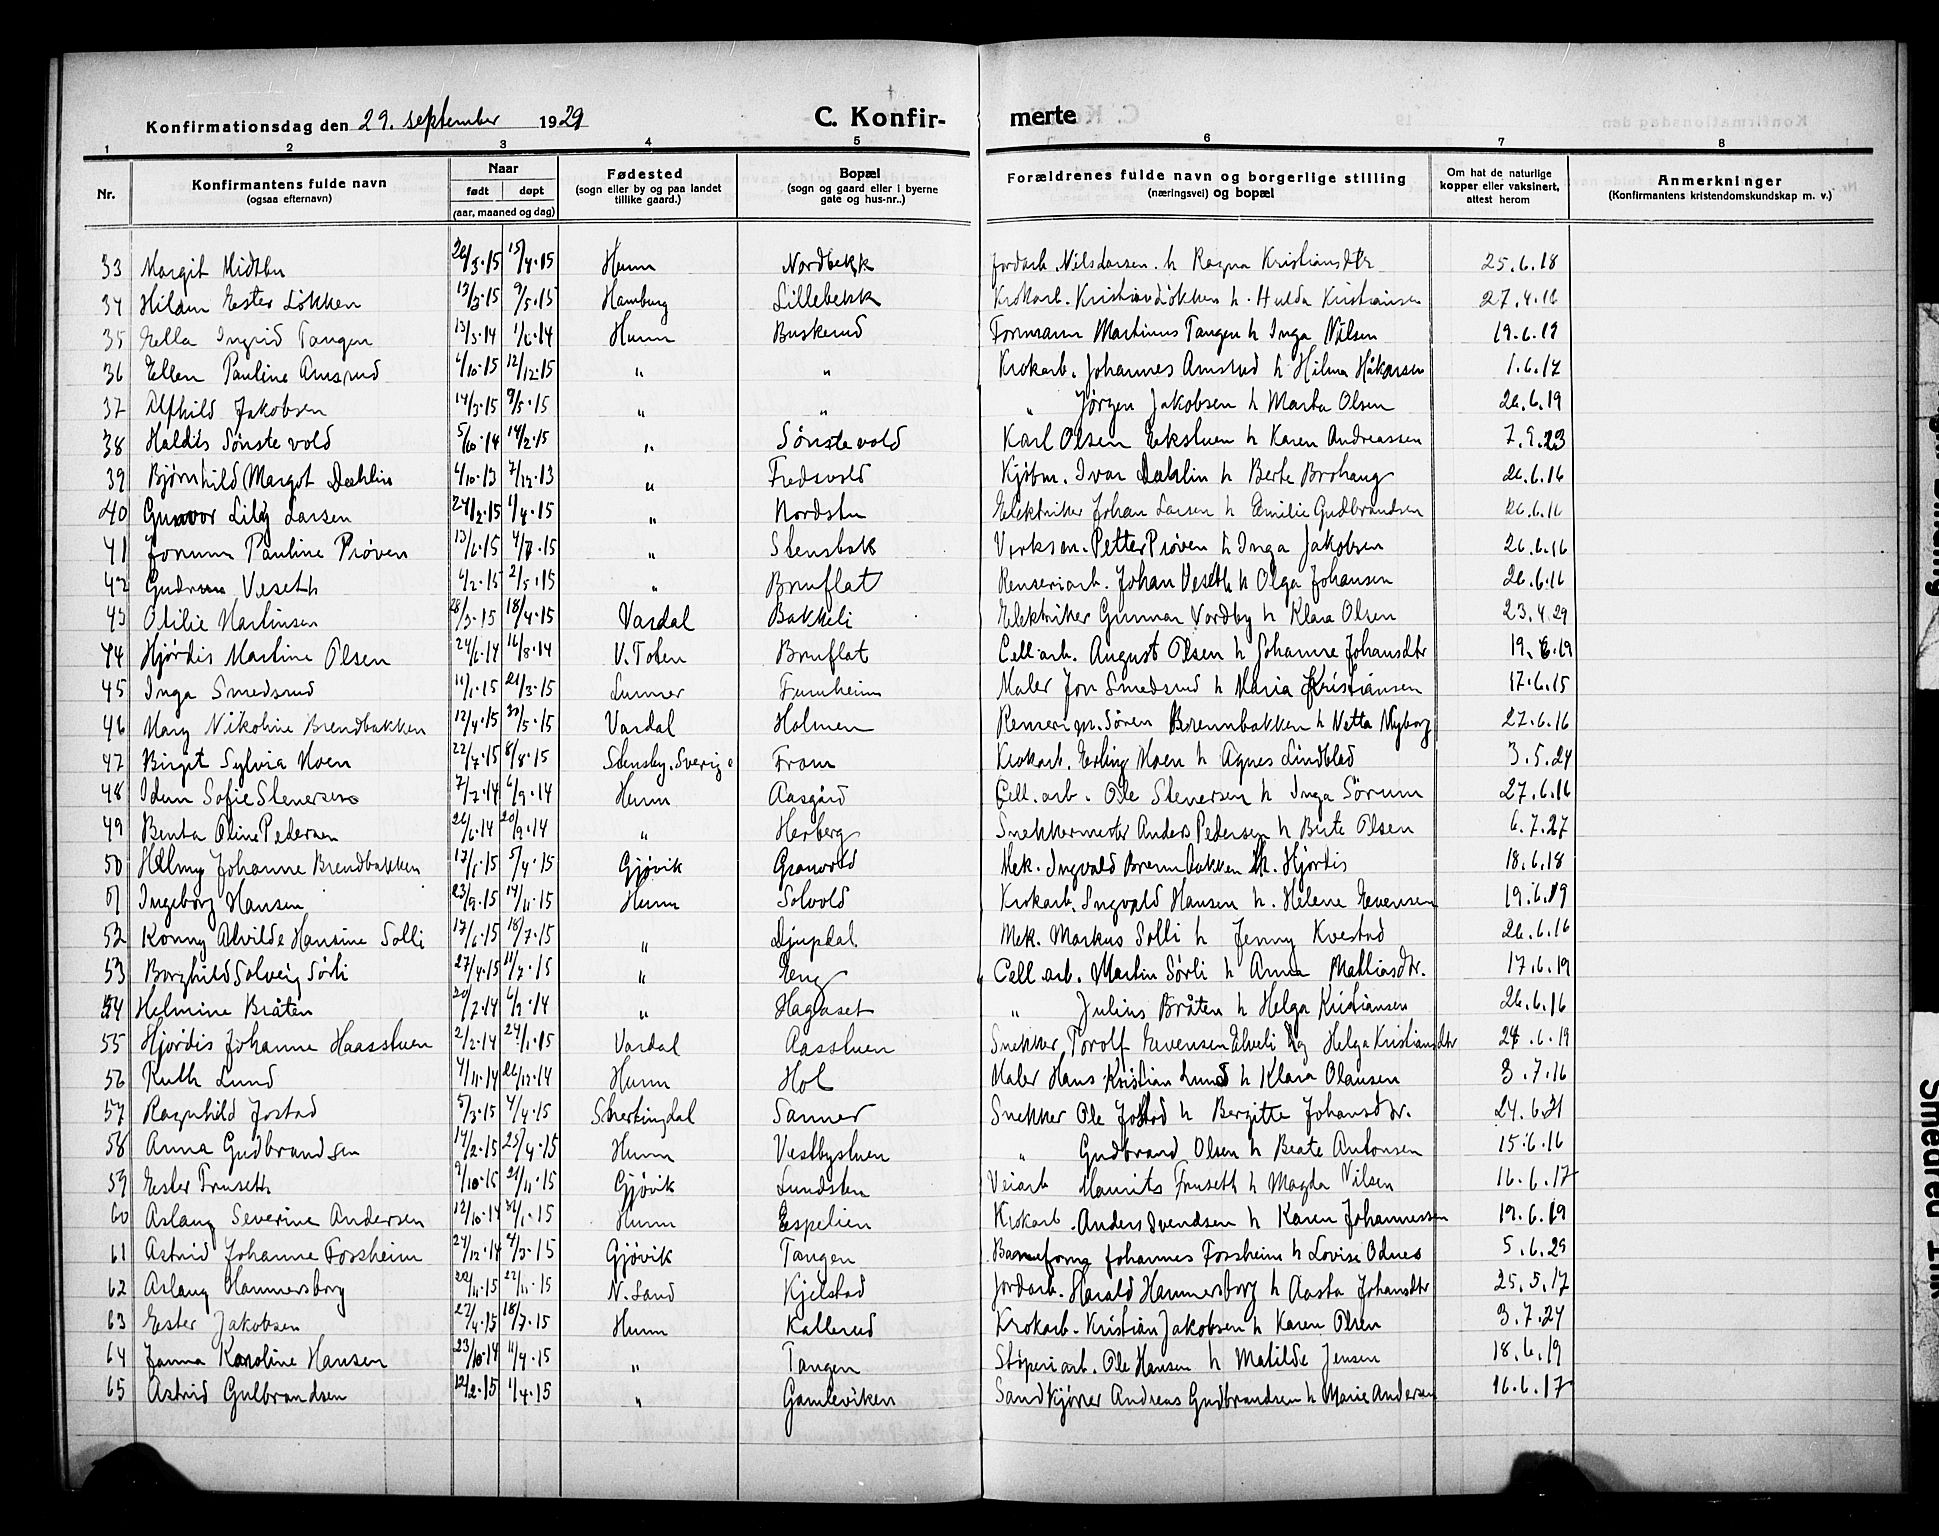 Konfirmationsdag den 29. september 1929 C. Konfir- merte
1 2 3 4 5 6 7 8
Nr. Konfirmantens fulde navn (ogsaa efternavn) Naar født døpt (aar, maaned og dag) Fødested (sogn eller by og paa landet tillike gaard.) Bopæl (sogn og gaard eller i byerne gate og hus-nr..) Forældrenes fulde navn og borgerlige stilling (næringsvei) og bopæl Om hat de naturlige kopper eller vaksinert, attest herom Anmerkninger (Konfirmantens kristendomskundskap m. v.)
33 Margit Midtbu 15/4.15 Hunn Nordbekk Jordarb. Nils Larsen. h Ragna Kristiansdtr 25.6.18
34 Ester Løkken 13/3.15 9/5.15 Lillebekk Krokarb. Kristian Løkken h. Hulda Kristiansen 27.4.16
35 Ella Ingrid Tangen 13/3.14 1/6.14 Hunn Buskerud Formann Martinus Tangen h Inga Nilsen 19.6.19
36 Ellen Pauline Amsrud 4/10.15 12/12.15 " " Krokarb. Johannes Amsrud h Hilma Håkonsen 1.6.17
37 Alfhild Jakobsen 14/3.15 9/5.15 " " " Jørgen Jakobsen h Marta Olsen 26.6.19
38 Haldis Sønstevold 5/10.14 14/2.15 " Sønstevold Karl Olsen Eekstuen h Karen Andreassen 7.9.23
39 Bjørnhild Margot Dæhlin 4/10.13 7/12.13 " Fredsvold Kjøbm. Ivar Dæhlin h Berte Brohaug 26.6.16
40 Gunvor Lilly Larsen 24/2.15 4/4.15 " Nordstu Elektriker Johan Larsen h Emilie Gudbrandsen 26.6.16
41 Jorunn Pauline Prøven 13/6.15 " Stensbak Verksm. Petter Prøven h Inga Jakobsen 26.6.16
42 Gudrun Veseth 4/2.15 2/5.15 " Bruflat Renseriarb. Johan Veseth h Olga Johansen 26.6.16
43 Otilie Martinsen 28/3.15 18/4.15 Vardal Bakkeli Elektriker Gunnar Nordby h Klara Olsen 23.4.29
44 Hjørdis Martine Olsen 24/6.14 16/8.14 V. Toten Bruflat Cell.arb. August Olsen h Johanne Johansdtr 19.6.19
45 Inga Smedsrud 11/1.15 21/3.15 Lunner Furuheim Maler Jon Smedsrud h Maria Kristiansen 17.6.15
46 Mary Nikoline Brendbakken 12/4.15 30/5.15 Vardal Holmen Renseri m. Søren Brennbakken h Netta Nyborg 27.6.16
47 Birgit Sylvia Moen 22/7.15 8/8.15 Stensby. Sverige Fram Krokarb. Erling Moen h Agnes Lindblad 3.5.24
48 Idun Sofie Stenersen 7/7.14 6/9.14 Hunn Aasgård Cell.arb. Ole Stenersen h Inga Sørum 27.6.16
49 Berta Oline Pedersen 26/6.14 20/9.14 " Herberg Snekkermester Anders Pedersen h Berte Olsen 6.7.27
50 Helmy Johanne Brendbakken 17/1.15 5/4.15 Gjøvik Granvold Mek. Ingvald Brennbakken h. Hjørdis 18.6.18
51 Ingeborg Hansen 23/9.15 14/11.15 Hunn Solvold Krokarb. Ingvald Hansen h. Helene Evensen 19.6.19
52 Konny Alvilde Hansine Solli 17/6.15 18/7.15 " Djupdal Mek. Markus Solli h Jenny Kvestad 26.6.16
53 Borghild Solveig Sørli 27/4.15 11/7.15 " Eng Cell.arb. Martin Sørli h Anna Mathiasdtr. 17.6.19
54 Helmine Bråten 20/7.14 6/9.14 " Haglaset " Julius Bråten h Helga Kristiansen 26.6.16
55 Hjørdis Johanne Haasstuen 2/2.14 24/1.15 Vardal Aasstuen Snekker Torolf Evensen Elveli og Helga Kristiansdtr 24.6.19
56 Ruth Lund 4/11.14 26/12.14 Hunn Hol Maler Hans Kristian Lund h Klara Olausen 3.7.16
57 Ragnhild Jostad 5/3.15 4/4.15 Snertingdal Sanner Snekker Ole Jostad h Bergitte Johansdtr. 24.6.21
58 Anna Gudbrandsen 14/2.15 25/4.15 Hunn Vestbystuen " Gudbrand Olsen h Beate Antonsen 15.6.16
59 Ester Fruseth 9/10.15 21/11.15 Gjøvik Lundsten Veiarb Maurits Fruseth h Magda Nilsen 16.6.17
60 Aslaug Severine Andersen 12/10.14 Hunn Espelien Krokarb. Anders Svendsen h Karen Johannessen 19.6.19
61 Astrid Johanne Forsheim 24/12.14 4/3.15 Gjøvik Tangen Baneform. Johannes Forsheim h Lovise Odnes 5.6.25
62 Aslaug Hammersborg 22/11.15 N. Land Kjelstad Jordarb. Harald Hammersborg h Aasta Johansdtr 25.5.17
63 Ester Jakobsen 27/4.15 18/7.15 Hunn Kallerud Krokarb. Kristian Jakobsen h Karen Olsen 3.7.24
64 Janna Karoline Hansen 23/10.14 11/4.15 " Tangen Støperiarb. Ole Hansen h Matilde Jensen 18.6.19
65 Astrid Gulbrandsen 12/2.15 4/4.15 " Gamleviken Sandkjører Andreas Gudbrandsen h Marie Andersen 16.6.17